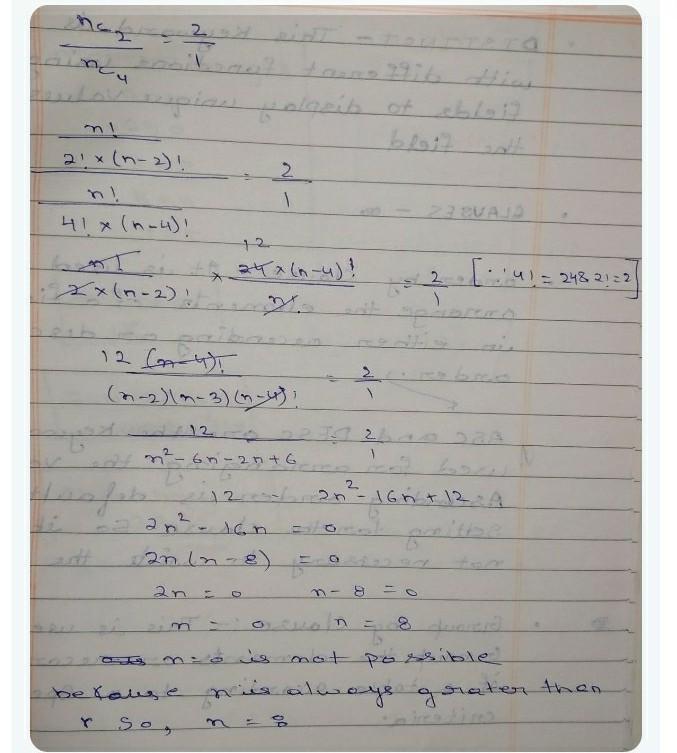 nC2 / nC4 = 2/1
n! / 2! × (n-2)!
n! / 4! × (n-4)! = 2/1
12
n! / 2 × (n-2)! × 24 × (n-4)! / n! = 2/1 [∵ 4! = 24 & 2! = 2]
12 (n-4)! / (n-2)(n-3)(n-4)! = 2/1
12 / n² - 6n - 2n + 6 = 2/1
12 = 2n² - 16n + 12
2n² - 16n = 0
2n (n - 8) = 0
2n = 0 n - 8 = 0
n = 0 n = 8
n=0 is not possible
because n is always grater then
r so, n = 8